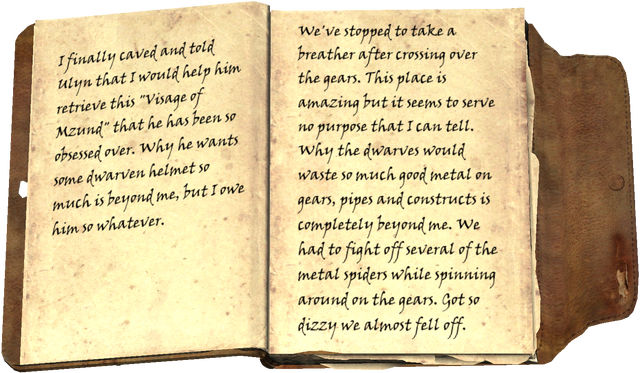 I finally caved and told
Ulyn that I would help him
retrieve this "Visage of
Mzund" that he has been so
obsessed over. Why he wants
some dwarven helmet so
much is beyond me, but I owe
him so whatever.
We've stopped to take a
breather after crossing over
the gears. This place is
amazing but it seems to serve
no purpose that I can tell.
Why the dwarves would
waste so much good metal on
gears, pipes and constructs is
completely beyond me. We
had to fight off several of the
metal spiders while spinning
around on the gears. Got so
dizzy we almost fell off.